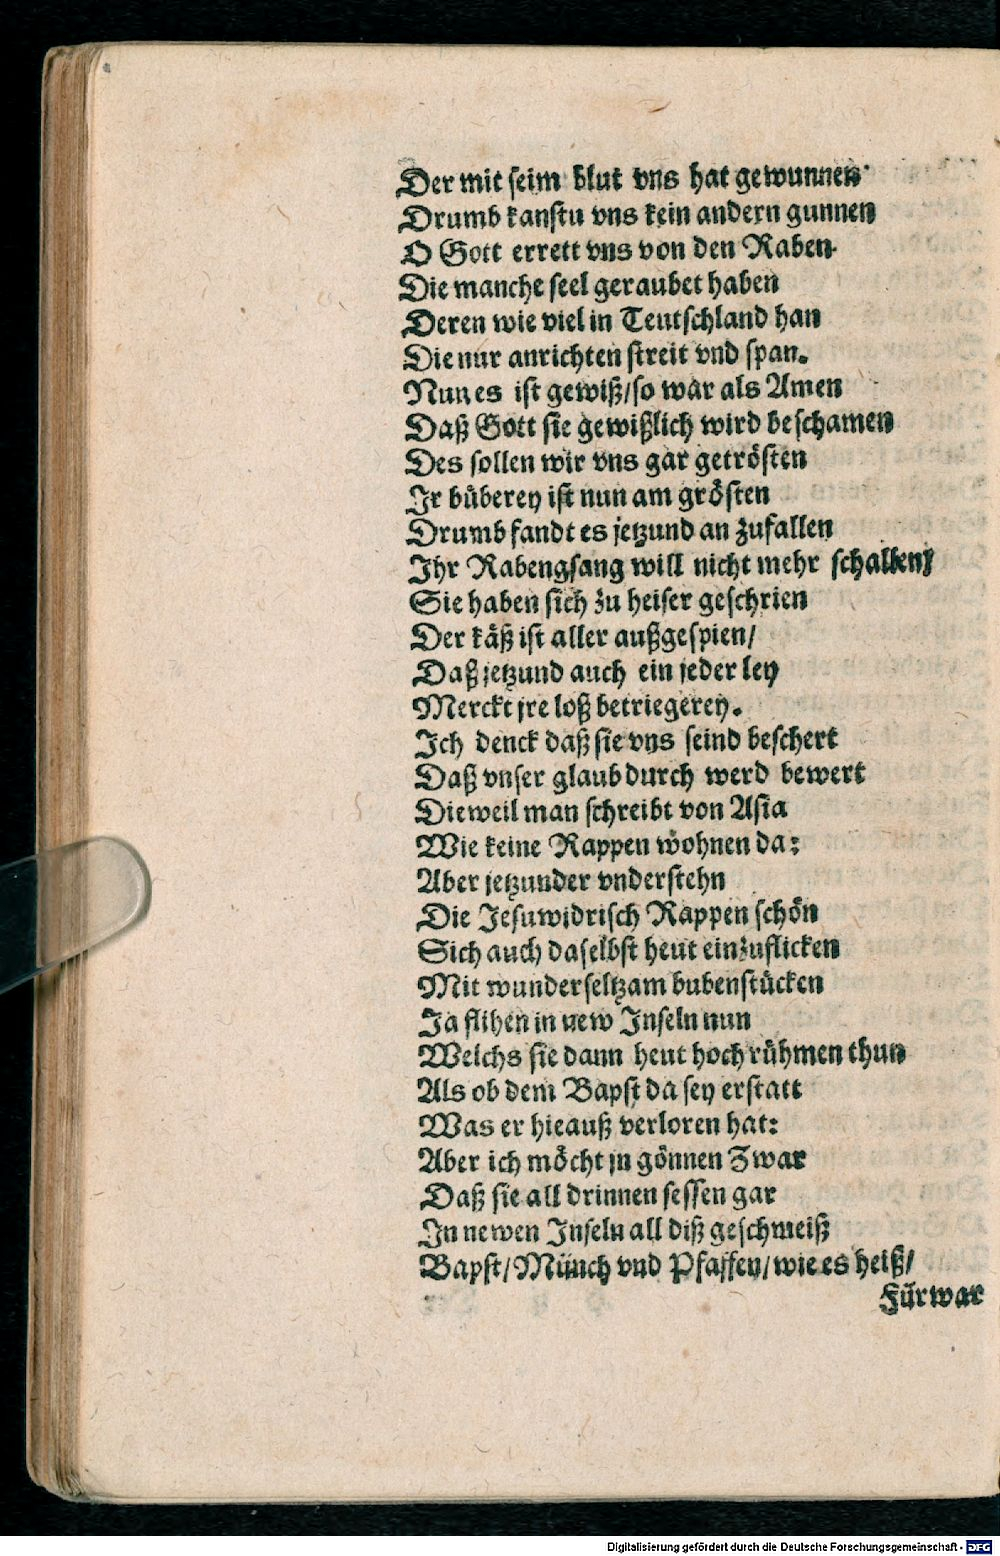 Der mit seim blut vns hat gewunnen
Drumb kanstu vns kein andern gunnen
O Gott errett vns von den Raben
Die manche seel geraubet haben
Deren wie viel in Teutschland han
Die nur anrichten streit vnd span.
Nun es ist gewiß/so war als Amen
Daß Gott sie gewißlich wird beschamen
Des sollen wir vns gar getrösten
Ir büberey ist nun am grösten
Drumb fandt es jetzund an zufallen
Ihr Rabengsang will nicht mehr schallen/
Sie haben sich zu heiser geschrien
Der käß ist aller außgespien/
Daß jetzund auch ein jeder ley
Merckt jre loß betriegerey.
Ich denck daß sie vns seind beschert
Daß vnser glaub durch werd bewert
Dieweil man schreibt von Asia
Wie keine Rappen wohnen da:
Aber jetzunder vnderstehn
Die Jesuwidrisch Rappen schön
Sich auch daselbst heut einzuflicken
Mit wunderseltzam bubenstücken
Ja flihen in new Inseln nun
Welchs sie dann heut hoch rühmen thun
Als ob dem Bapst da sey erstatt
Was er hieauß verloren hat:
Aber ich möcht jn gönnen Zwar
Daß sie all drinnen sessen gar
In newen Inseln all diß geschmeiß
Bapst/Münch vnd Pfaffen/wie es heiß/
Fürwar
Digitalisierung gefördert durch die Deutsche Forschungsgemeinschaft - DFG